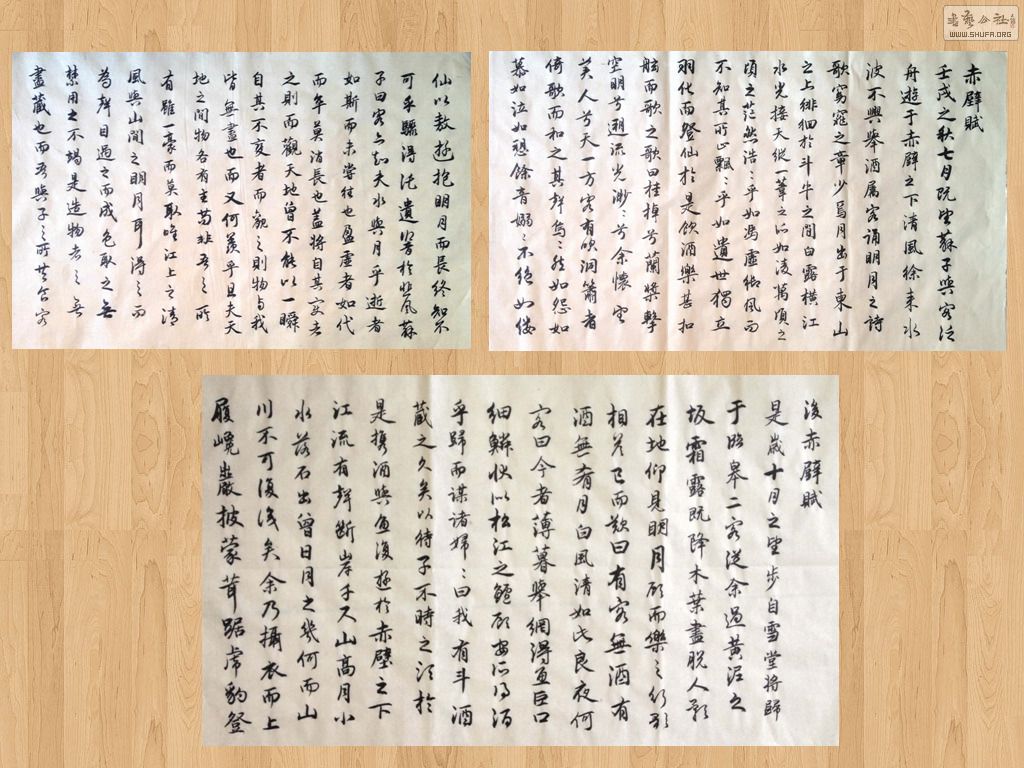 書藝公社
WWW.SHUFA.ORG
赤壁賦
壬戌之秋七月既望蘇子與客泛
舟遊于赤壁之下清風徐來水
波不興舉酒屬客誦明月之詩
歌窈窕之章少焉月出于東山
之上徘徊於斗牛之間白露橫江
水光接天縱一葦之所如凌萬頃之
頃之茫然浩々乎如馮虛御風而
不知其所止飄々乎如遺世獨立
羽化而登仙於是飲酒樂甚扣
舷而歌之歌曰桂棹兮蘭槳擊
空明兮遡流光渺々兮余懷望
美人兮天一方客有吹洞簫者
倚歌而和之其聲烏々然如怨如
慕如泣如愬餘音嫋々不絕如縷
仙以敖遊抱明月而長終知不
可乎驟得託遺響於悲風蘇
子曰客亦知夫水與月乎逝者
如斯而未嘗往也盈虛者如代
而卒莫消長也蓋將自其變者
之則而觀天地曾不能以一瞬
自其不變者而觀之則物與我
皆無盡也而又何羨乎且夫天
地之間物各有主苟非吾之所
有雖一豪而莫取唯江上之清
風與山間之明月耳得之而
為聲目遇之而成色取之無
禁用之不竭是造物者之無
盡藏也而吾與子之所共食客
後赤壁賦
是歲十月之望步自雪堂將歸
于臨皋二客從余過黃泥之
坂霜露既降木葉盡脫人影
在地仰見明月顧而樂之行歌
相答已而歎曰有客無酒有
酒無肴月白風清如此良夜何
客曰今者薄暮舉網得魚巨口
細鱗狀似松江之鱸顧安所得酒
乎歸而謀諸婦々曰我有斗酒
藏之久矣以待子不時之須於
是攜酒與魚復遊於赤壁之下
江流有聲斷岸千尺山高月小
水落石出曾日月之幾何而山
川不可復識矣余乃攝衣而上
履巉巖披蒙茸踞虎豹登